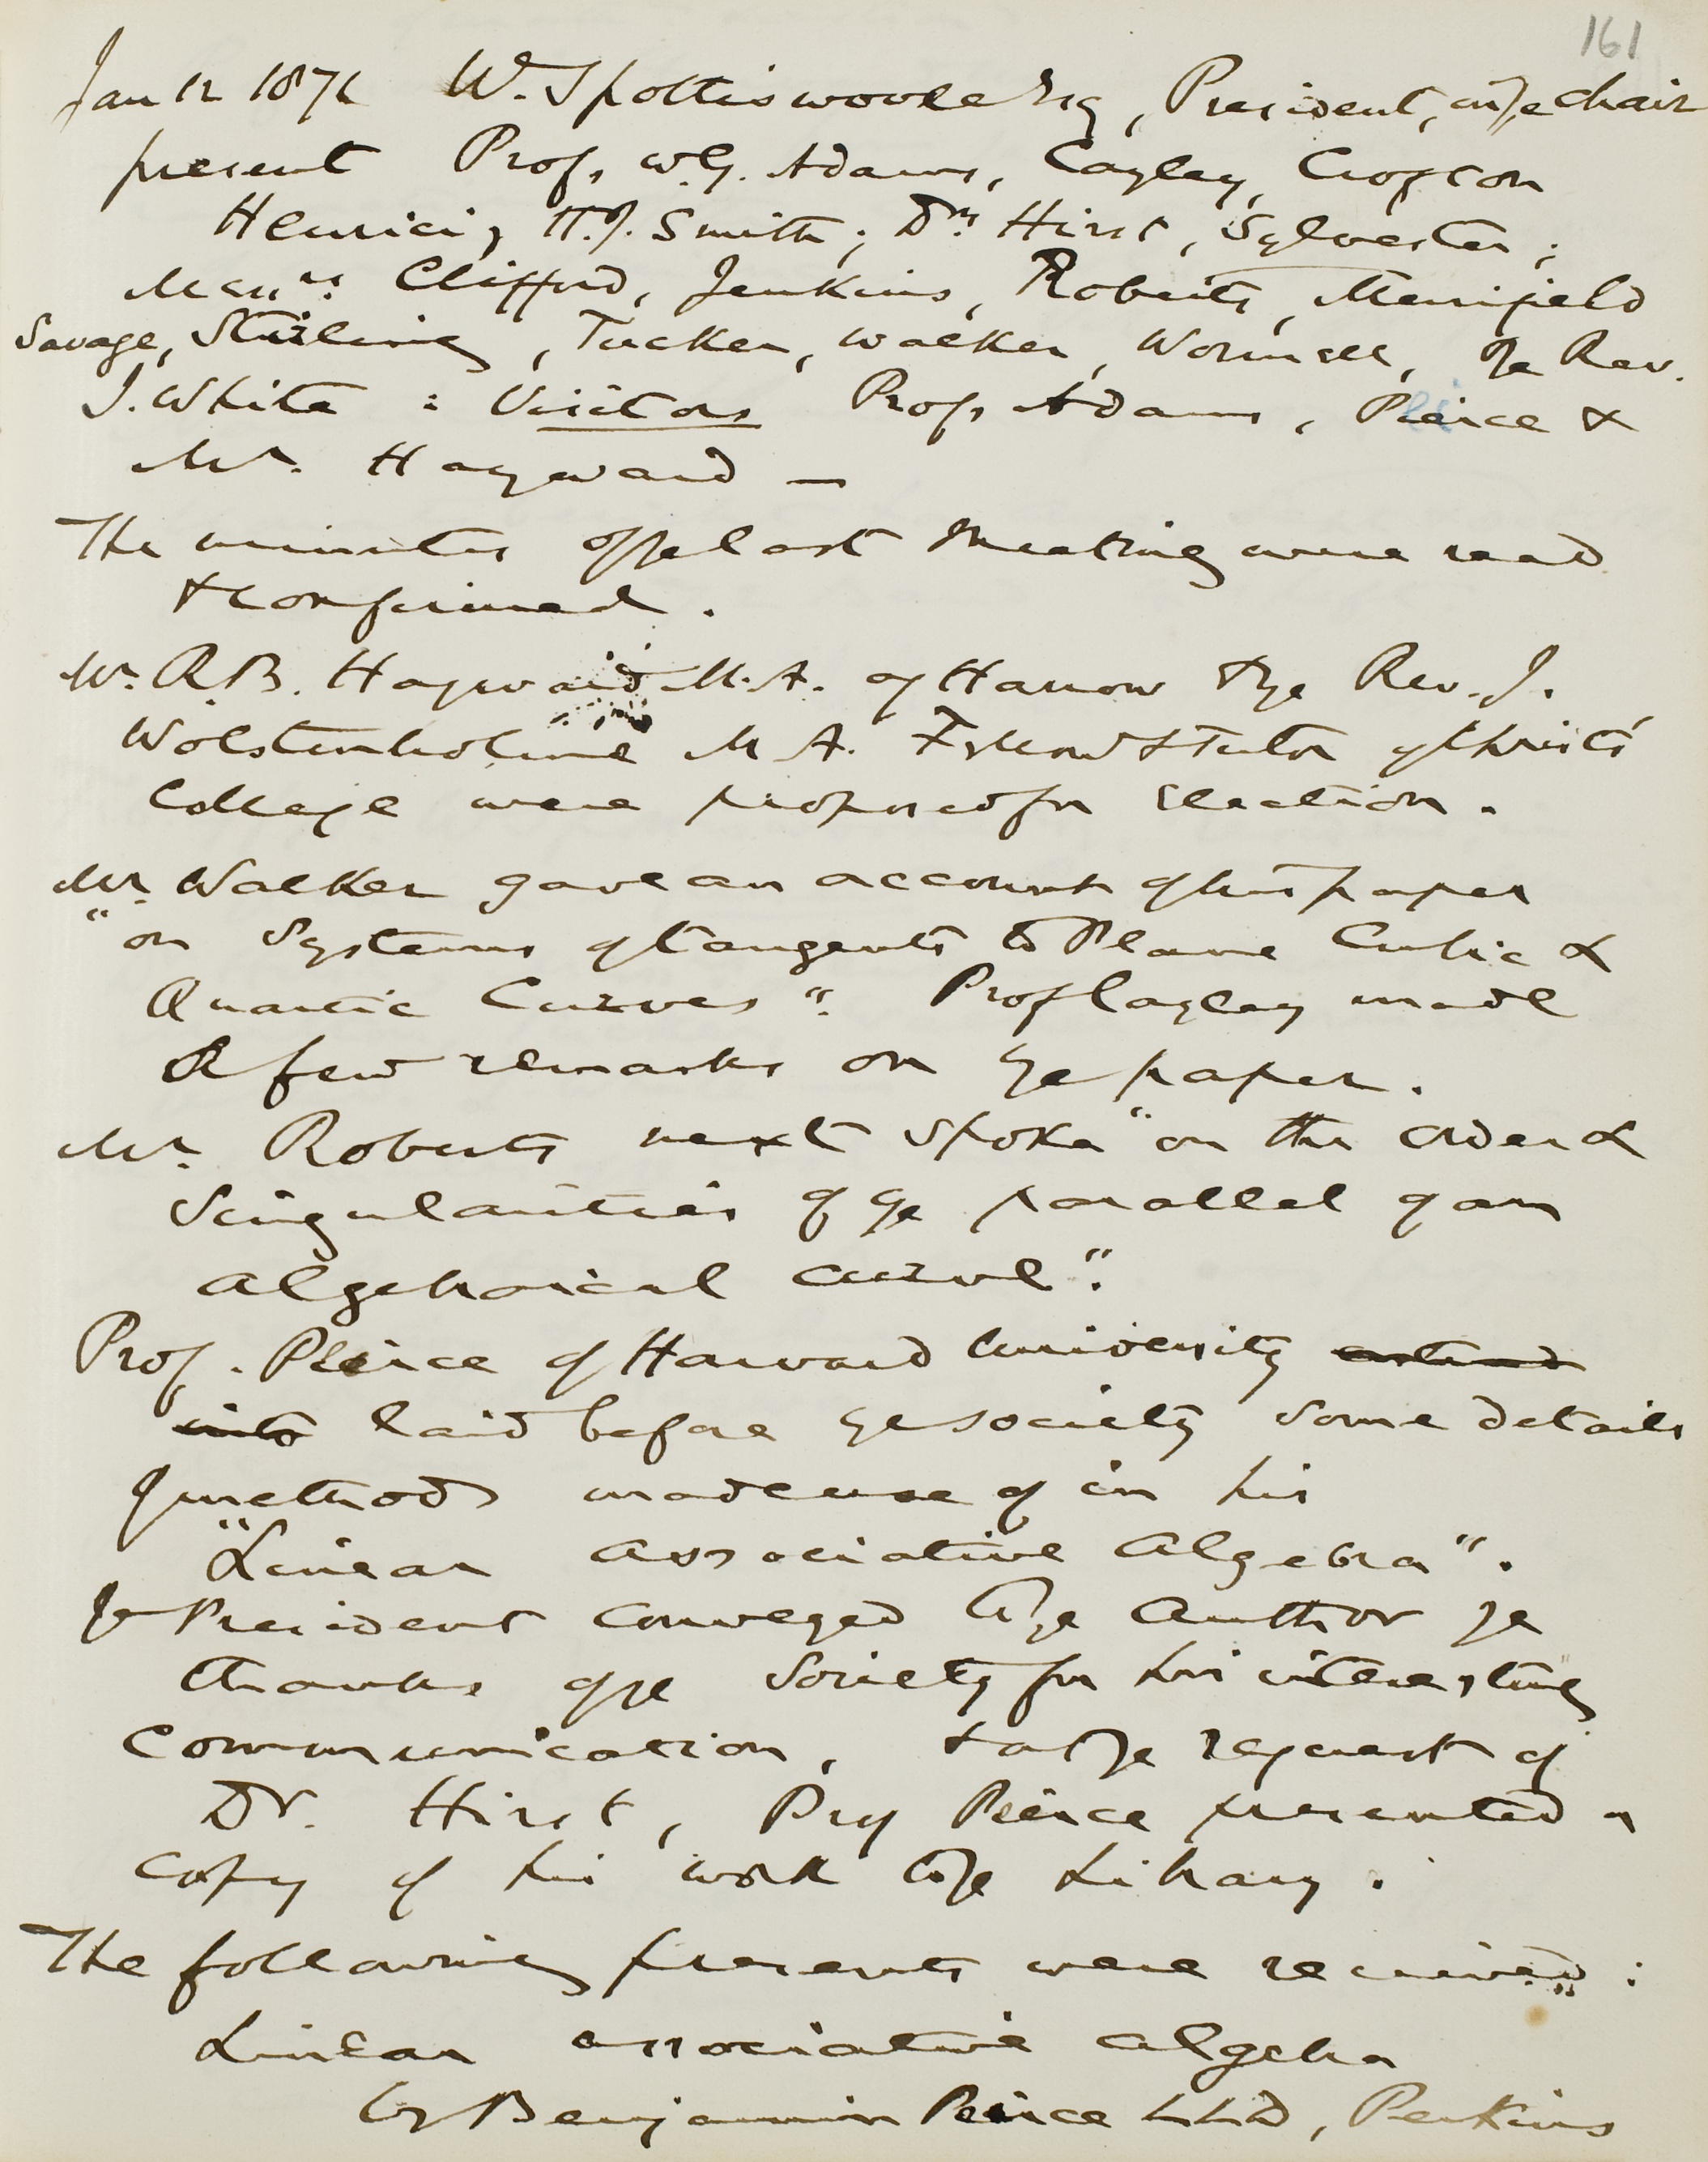 161
Jan 12 1871 W. Spottiswoode Esq, President, in ye chair
present Profs W.G. Adams, Cayley, Crofton
Henrici, H.J. Smith; Drs Hirst, Sylvester;
Messrs Clifford, Jenkins, Roberts, Merrifield
Savage, Stirling, Tucker, Walker, Wormell, ye Rev.
J. White : Visitors Profs Adams, Peirce &
Mr. Hayward —
The minutes of ye last Meeting were read
& confirmed.
Mr. R.B. Hayward M.A. of Harrow & ye Rev. J.
Wolstenholme M A. Fellow & Tutor of Christs'
College were proposed for election.
Mr. Walker gave an account of his paper
"on Systems of tangents to Plane Cubic &
Quartic Curves". Prof Cayley made
a few remarks on ye paper.
Mr. Roberts next spoke "on the order &
Singularities of ye parallel of an
algebraical curve".
Prof. Peirce of Harvard University entered
into laid before ye society some details
of methods made use of in his
"Linear associative algebra".
Ye President conveyed to ye author ye
thanks of ye Society for his interesting
communication, & at ye request of
Dr. Hirst, Prof Peirce presented a
copy of his work to ye Library.
The following presents were received :
Linear associative algebra
by Benjamin Peirce LLD, Perkins